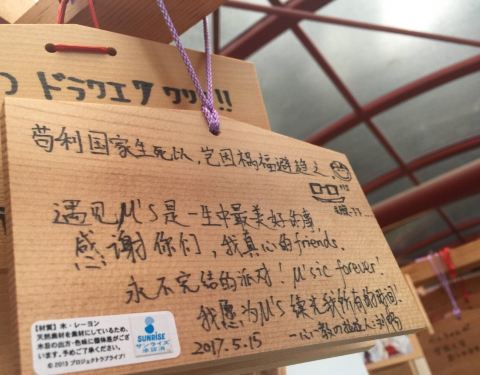 ドラクエ
!!
苟利国家生死以,岂因祸福避趋之.
遇见μ's是一生中最美好的事,
感谢你们,我真心的friends.
永不完结的派对!μ'sic forever!
我愿为μ's 燃尽我所有的时间!
2017.5.15
【材質】木・レーヨン
天然素材を素材にしているため、
木目の出方・色味に個体差がござ
います。予めご了承ください。
©2013 プロジェクトラブライブ!
SUNRISE
サンライズ